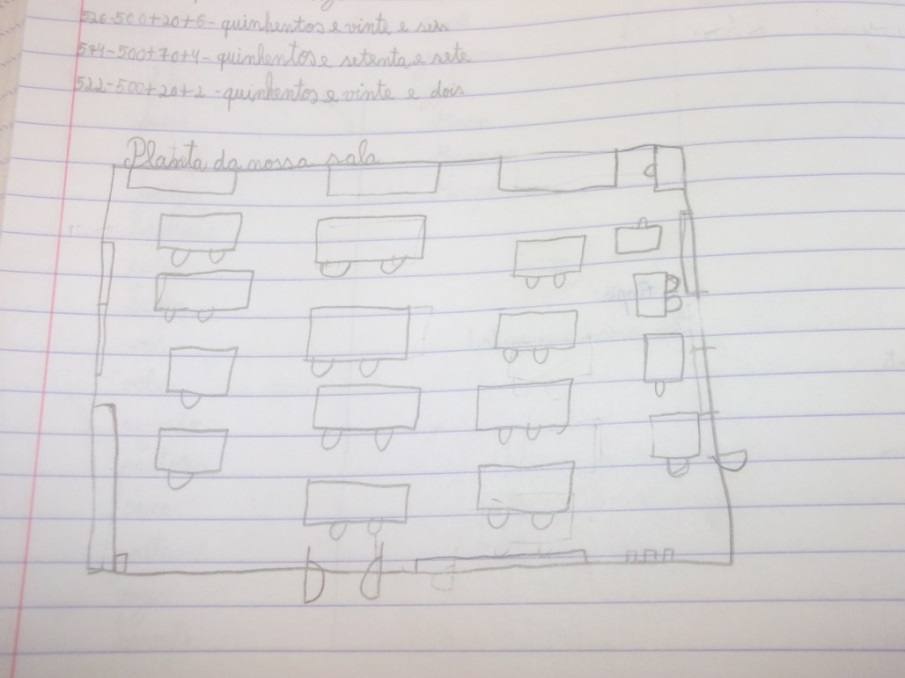 526-500+20+6- quinhentos e vinte e seis
574-500+70+4- quinhentos e setenta e sete
522-500+20+2-quinhentos e vinte e dois
Planta da nossa sala